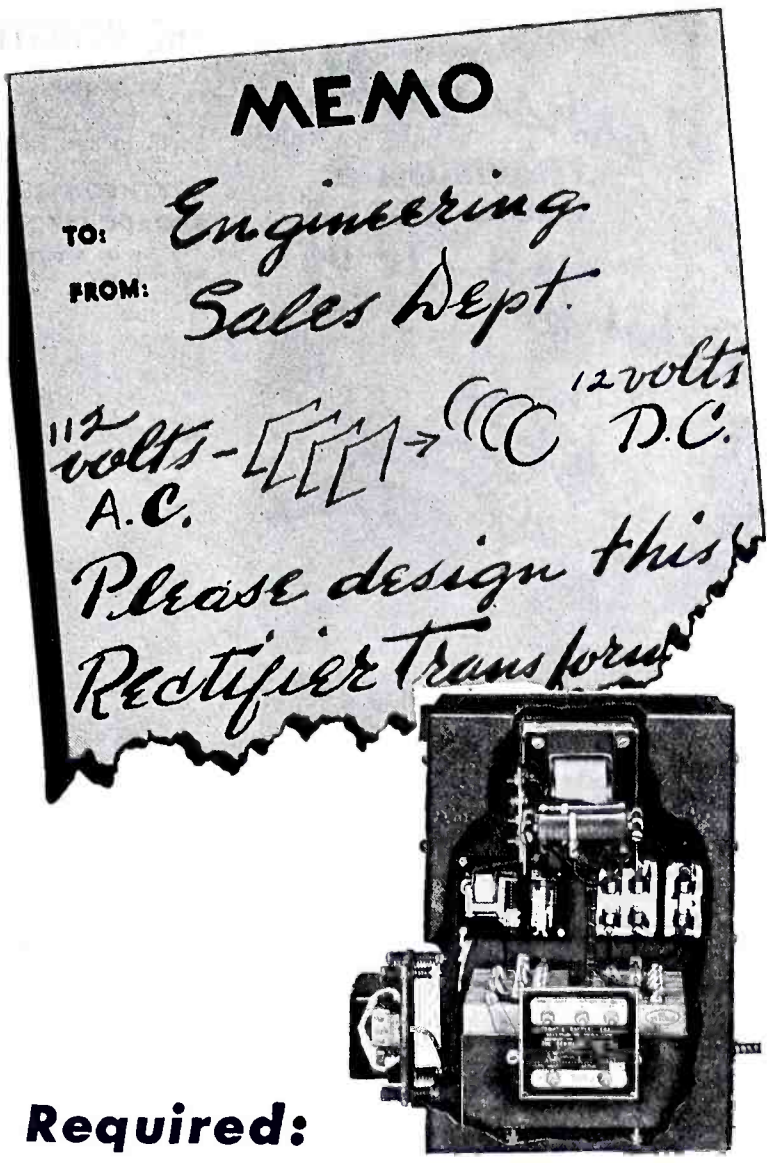 MEMO
TO: Engineering
FROM: Sales Dept.
112 volts - A.C. → 12 volts D.C.
Please design this
Rectifier Transform
Required: